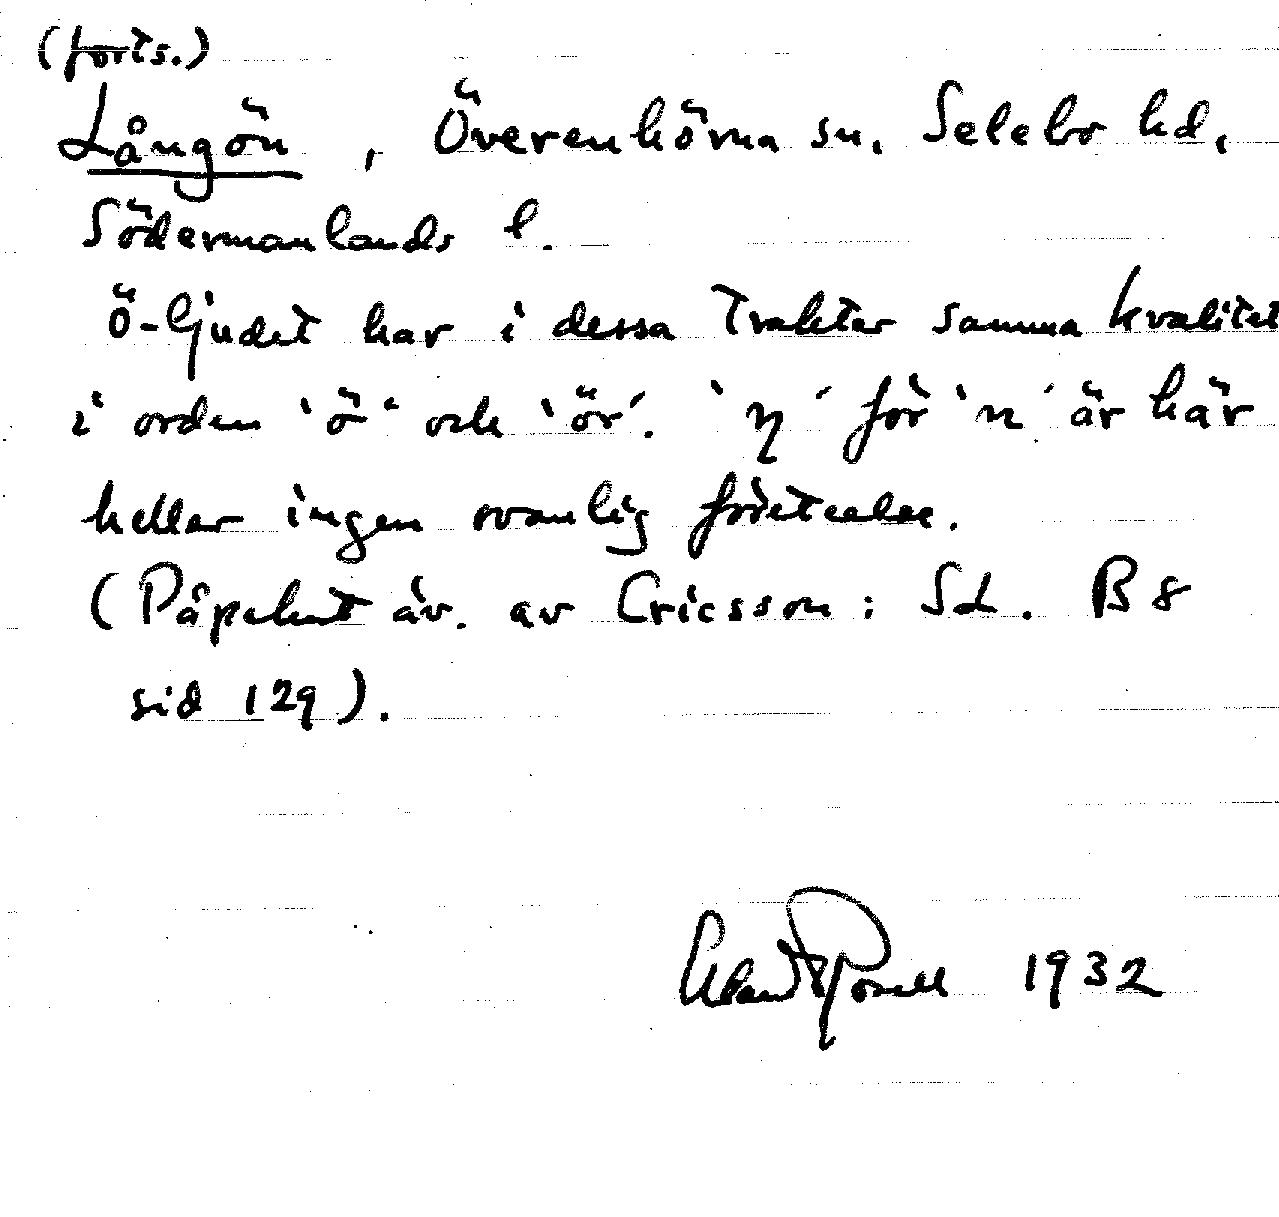 (forts.)
Långön, Överenhörna sn, Selebo hd,
Södermanlands l.
ö-ljudet har i dessa trakter samma kvalitet
i orden 'ö' och 'ör'. 'η' för 'n' är här
heller ingen ovanlig företeelse.
(Påpekat äv. av Ericsson: Sd. B 8
sid 129).
1932